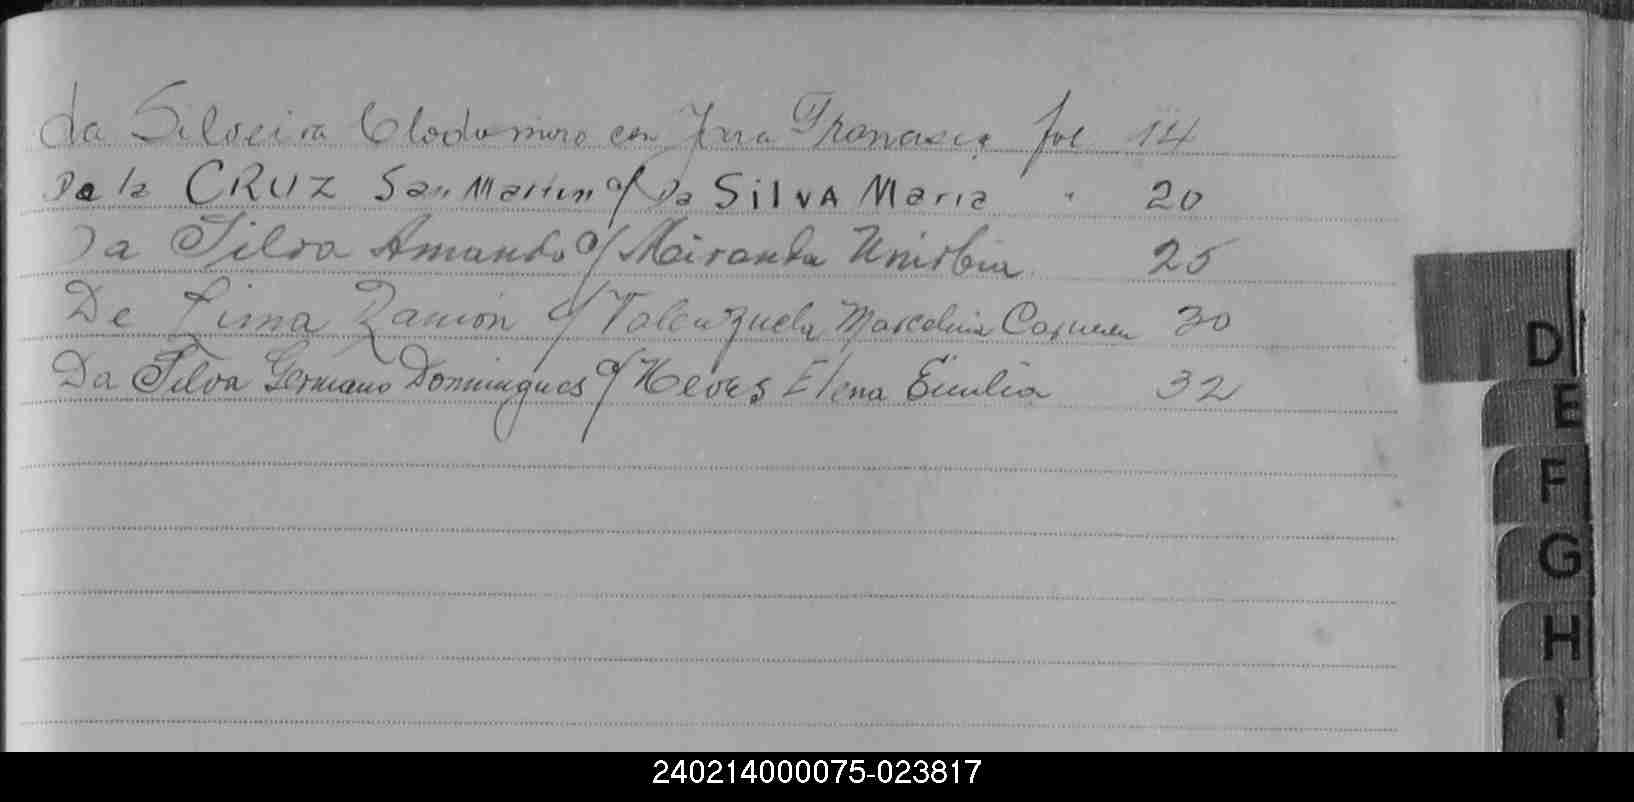 da Silveira Clodomiro con Jara Francisca fol 14
De la CRUZ San Martin c/ Da SilvA Maria " 20
Da Silva Amando c/ Miranda 25
De Lima Ramón c/ Valenzuela Marcelina 30
Da Silva Germano Domingues c/ Neves Elena Emilia 32
D
E
F
G
H
I
240214000075-023817